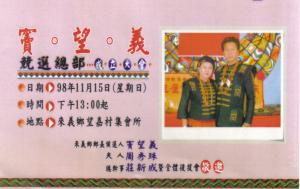 寶·望·義
競選總部 成立大會
日期 98年11月15日(星期日)
時間 下午13:00起
地點 來義鄉望嘉村集會所
來義鄉鄉長候選人 寶望義
夫人 周秀珠
總幹事 莊新成 暨全體後援會 敬邀